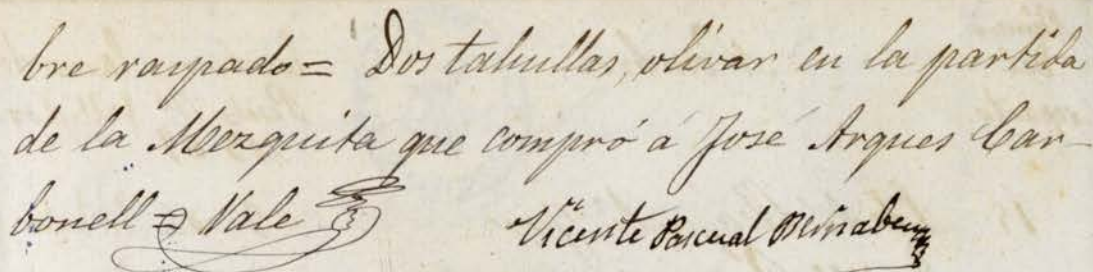 bre raspado = Dos tahullas, olivar en la partida
de la Mezquita que compró á José Arques Car-
bonell = Vale
Vicente Pascual Beñabeu